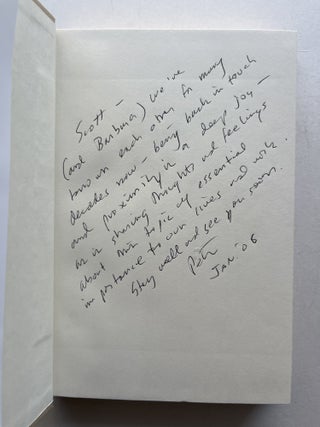 Scott –
(and Barbara) we've
known each other for many
decades now – being back in touch
and proximity is a deep joy –
as is sharing thoughts and feelings
about this topic of essential
importance to our lives and work.
Stay well and see you soon.
Pete
Jan '06